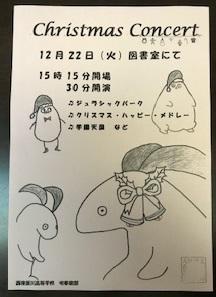 Christmas Concert
12月22日(火)図書室にて
15時15分開場
30分開演
♫ジュラシックパーク
♫クリスマス・ハッピー・メドレー
♫学園天国 など
高等学校 吹奏楽部